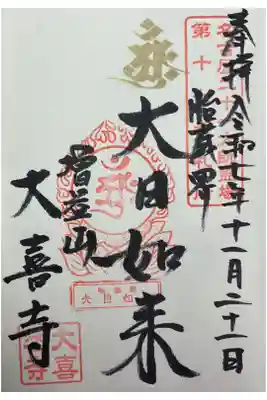 奉拝 令和七年十一月二十一日
第十
胎蔵界
大日如来
増益山
大喜寺
大喜
寺